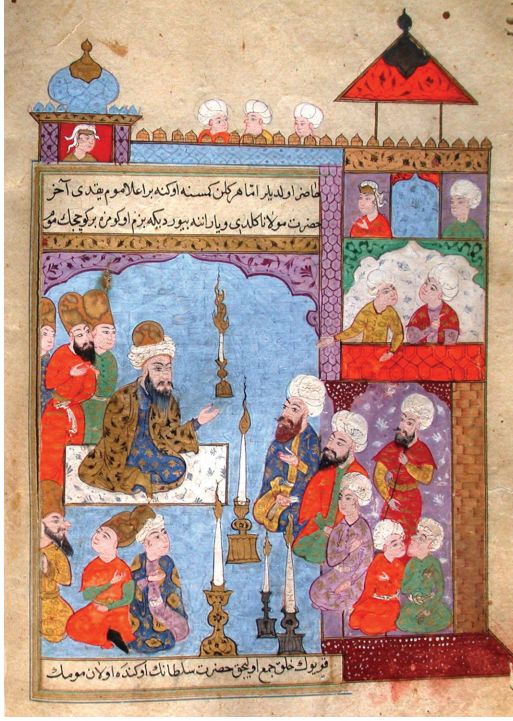 حاضر اولديلر اما هر كلن كمسنه اوكنه بر اعلا موم يقدى آخر
حضرت مولانا كلدى و يارانته بيورديكه بزم اوكومزه بر كوچجك موم
قويوك خلق جمع اوليجق حضرت سلطانك اوكنده اولان مومك